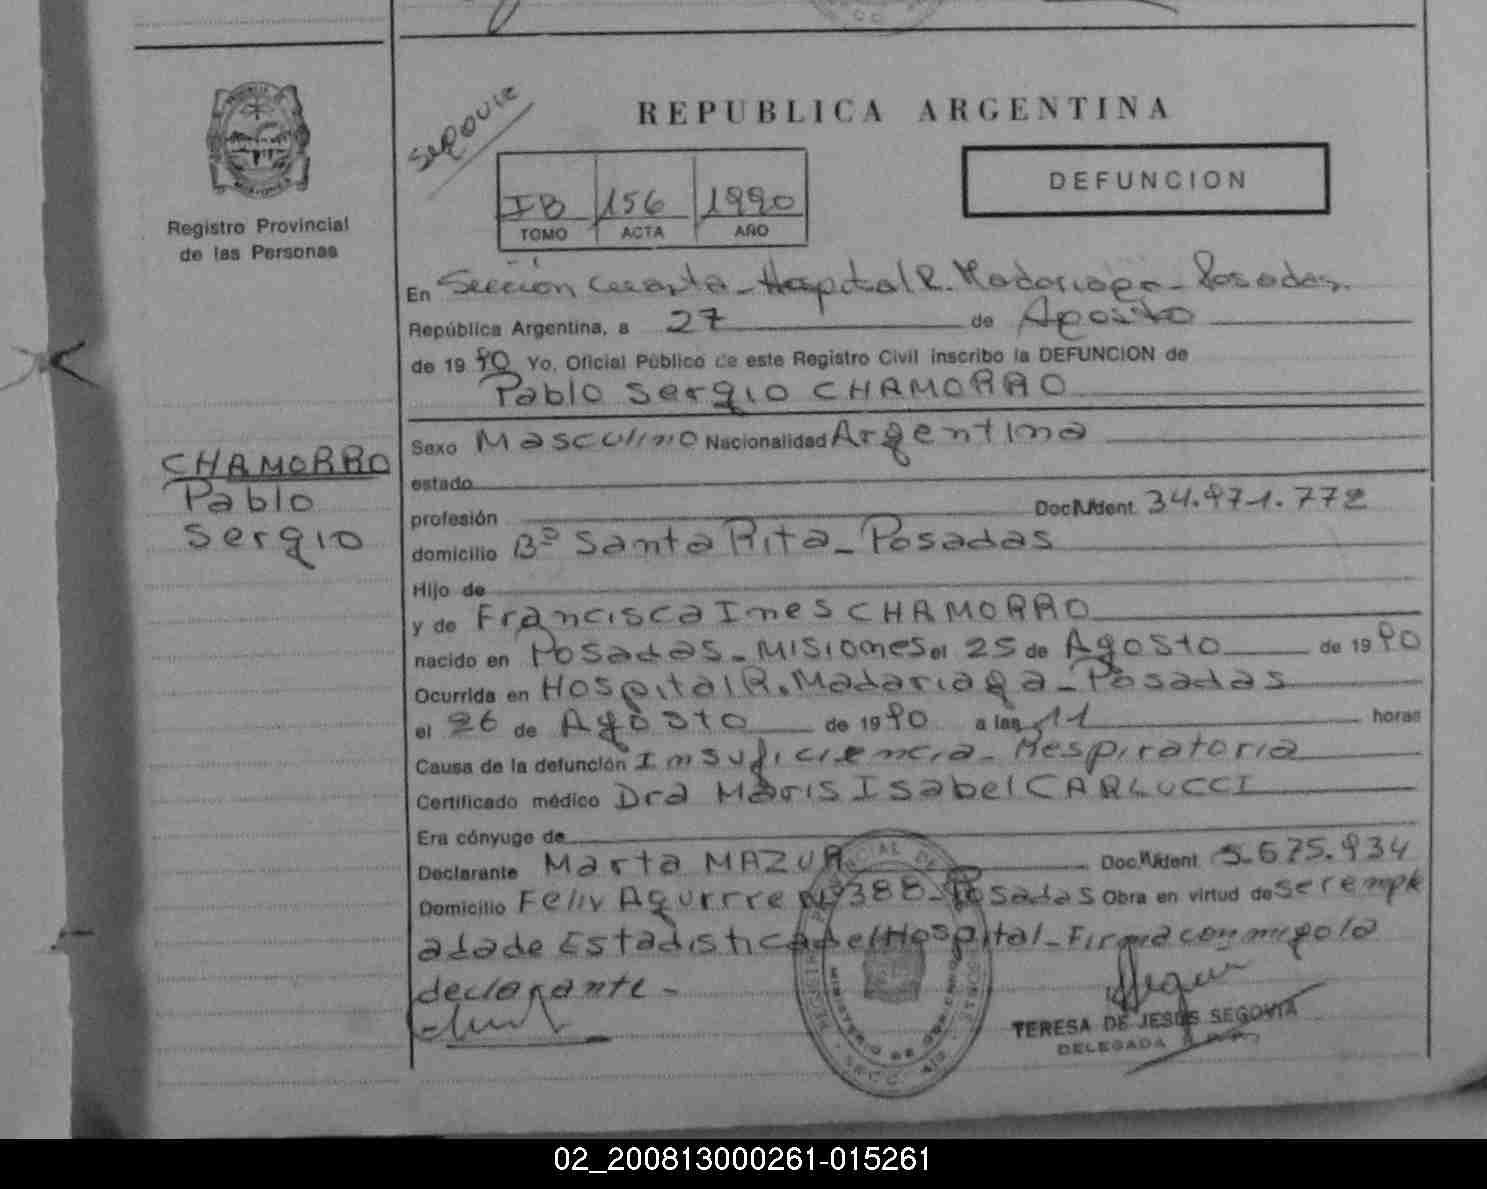 REPUBLICA ARGENTINA
DEFUNCION
IB 156 1990
TOMO ACTA AÑO
Registro Provincial
de las Personas
En Sección Cuarta - Hospital R. Madariaga - Posadas.
República Argentina, a 27 de Agosto
de 1990 Yo, Oficial Público de este Registro Civil inscribo la DEFUNCION de
Pablo Sergio CHAMORRO
CHAMORRO
Pablo
Sergio
Sexo Masculino Nacionalidad Argentina
estado
profesión Doc. Ident. 34.971.772
domicilio Bº Santa Rita - Posadas
Hijo de
y de Francisca Ines CHAMORRO
nacido en Posadas - Misiones el 25 de Agosto de 1990
Ocurrida en Hospital R. Madariaga - Posadas
el 26 de Agosto de 1990 a las 11 horas
Causa de la defunción Insuficiencia - Respiratoria
Certificado médico Dra Maris Isabel CARLUCCI
Era cónyuge de
Declarante Marta MAZUR Doc. Ident. 5.675.934
Domicilio Felix Aguirre Nº 388 - Posadas Obra en virtud de ser emple
ada de Estadistica del Hospital - Firma conmigo la
declarante -
TERESA DE JESUS SEGOVIA
DELEGADA
02_200813000261-015261